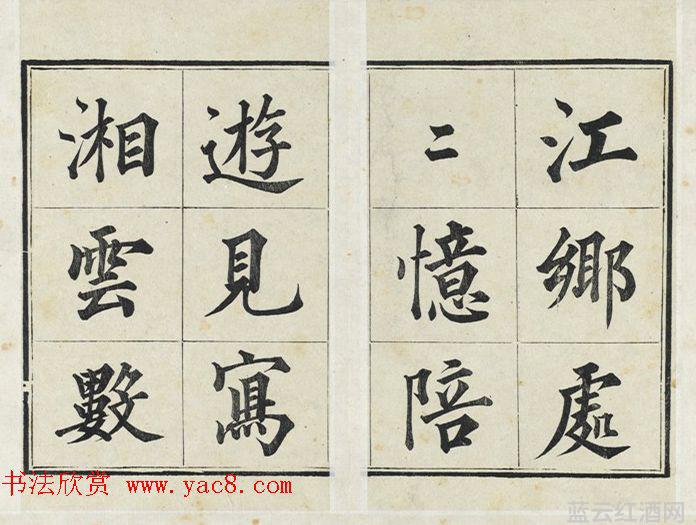 江鄉處
二憶陪
遊見寫
湘雲數
书法欣赏 www.yac8.com
蓝云红酒网